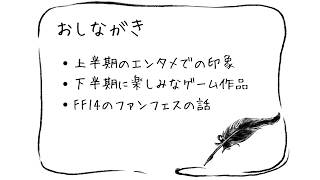 おしながき
• 上半期のエンタメでの印象
• 下半期に楽しみなゲーム作品
• FF14のファンフェスの話